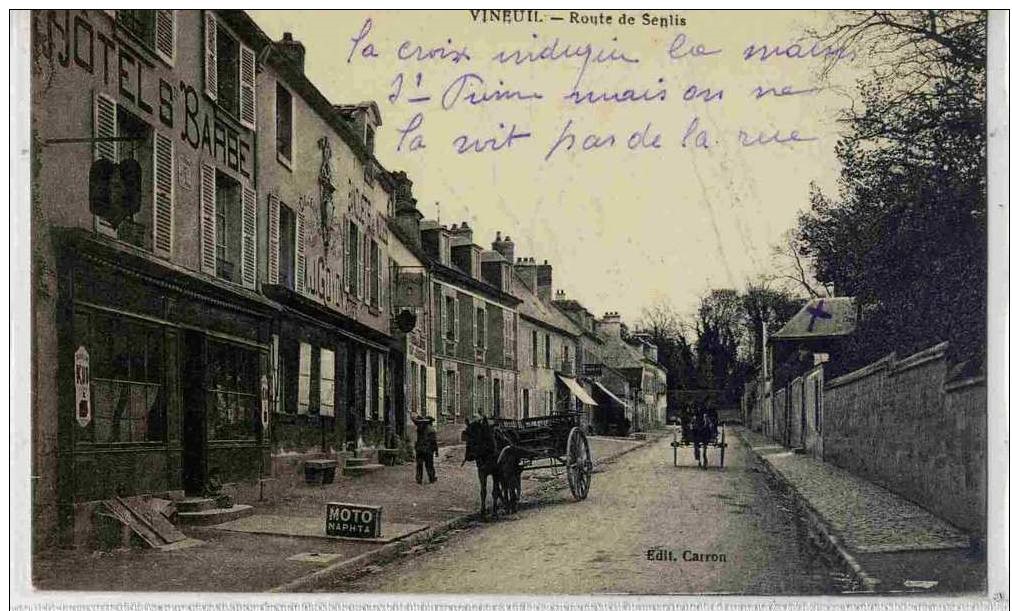 VINEUIL - Route de Senlis
la croix indique la maison
St Firmin mais on ne
la voit pas de la rue
HOTEL Ste BARBE
KUB
MOTO
NAPHTA
Edit. Carron